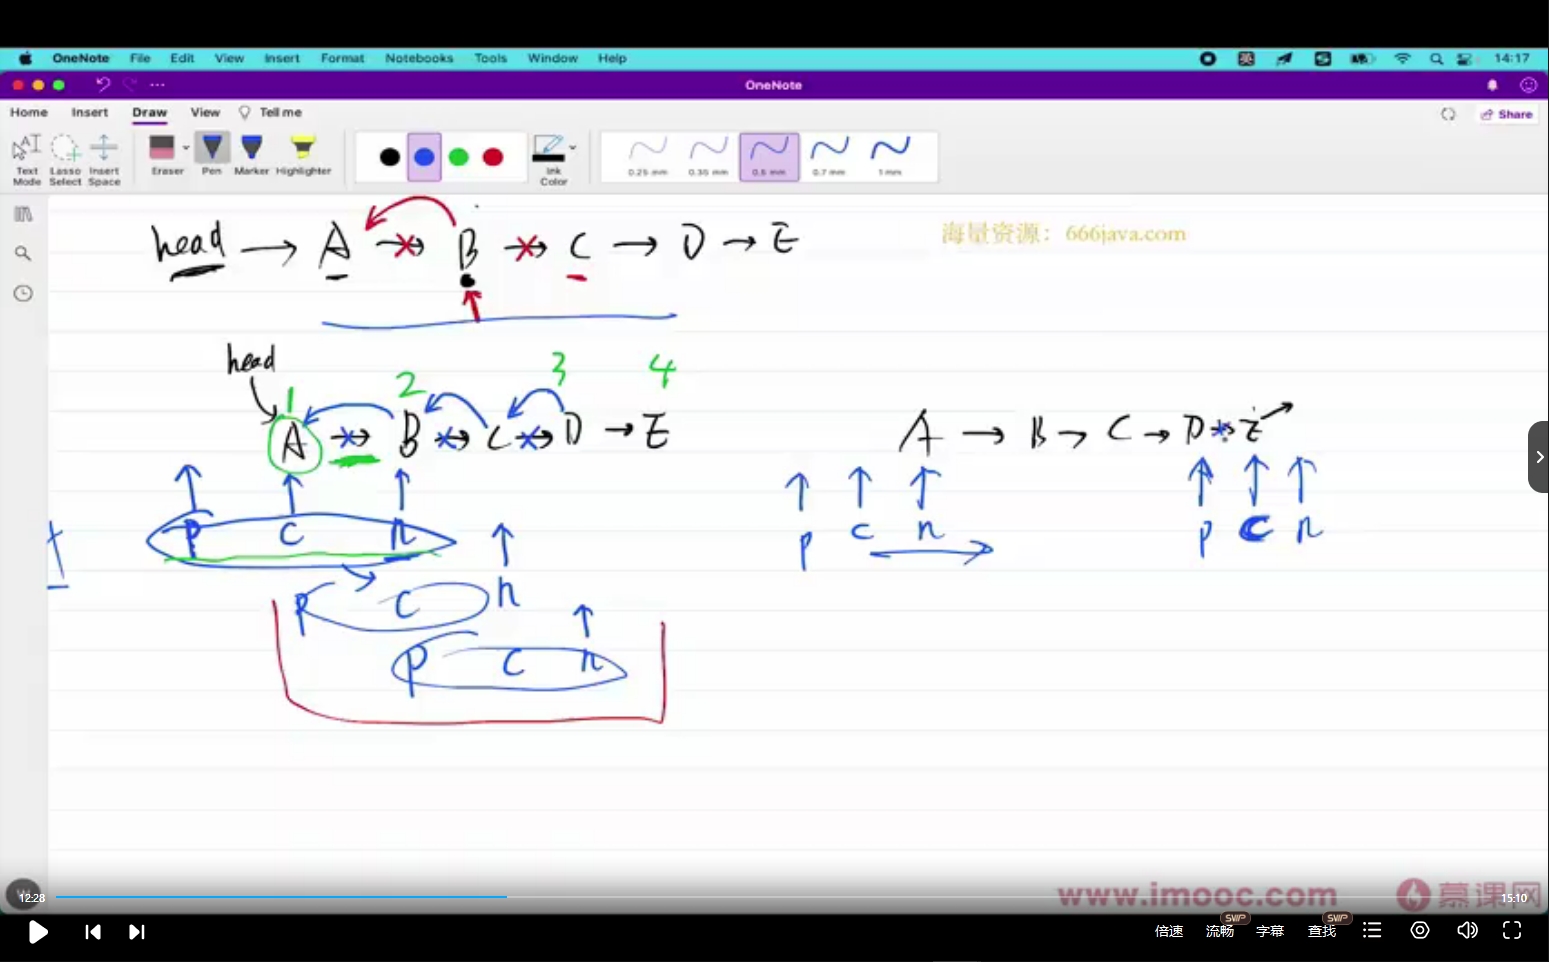 OneNote File Edit View Insert Format Notebooks Tools Window Help 14:17
OneNote
Home Insert Draw View Tell me Share
Text Mode Lasso Select Insert Space Eraser Pen Marker Highlighter Ink Color 0.25 mm 0.35 mm 0.5 mm 0.7 mm 1 mm
head → A → B → C → D → E
海量资源：666java.com
head
1 2 3 4
A → B → C → D → E
A → B → C → D → E
P C n
P C n
P C n
P C n
P C n
www.imooc.com 慕课网
12:28 15:10
倍速 流畅 SVIP 字幕 查找 SVIP